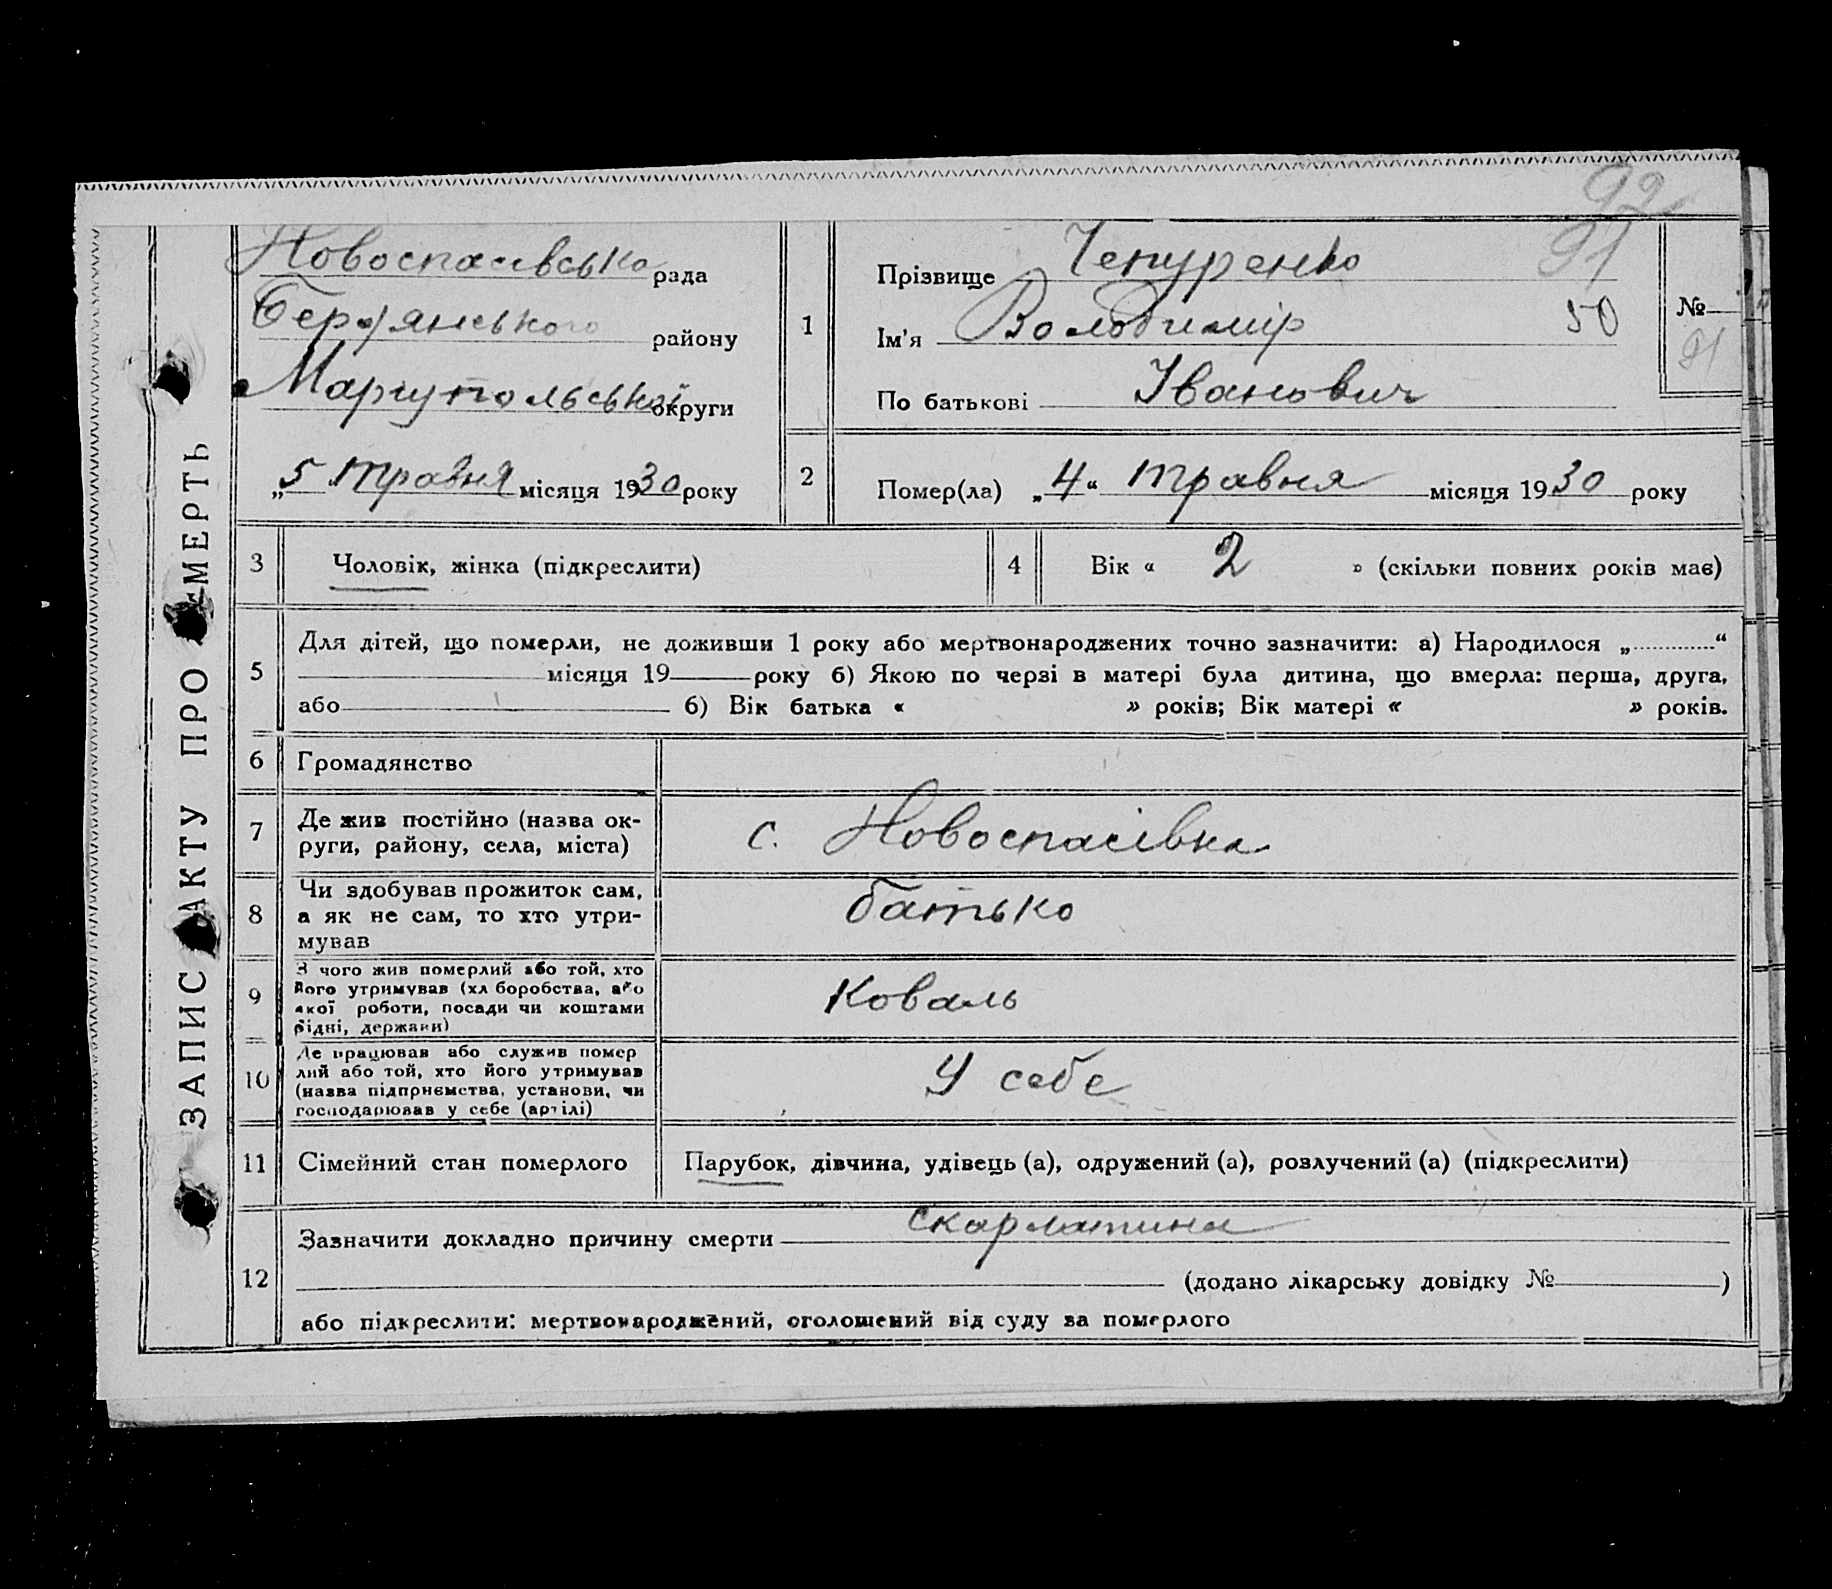 92
ЗАПИС АКТУ ПРО СМЕРТЬ
Новоспасівська рада
Берд'янського району
Маріупольської округи
„5 травня місяця 1930 року
1
Прізвище Чепуренко 91
Ім'я Володимір 50
По батькові Іванович
№
91
2
Помер(ла) „4“ травня місяця 1930 року
3 Чоловік, жінка (підкреслити)
4 Вік « 2 » (скільки повних років має)
5
Для дітей, що померли, не доживши 1 року або мертвонароджених точно зазначити: а) Народилося „ “
місяця 19 року б) Якою по черзі в матері була дитина, що вмерла: перша, друга,
або б) Вік батька « » років; Вік матері « » років.
6 Громадянство
7
Де жив постійно (назва ок-
руги, району, села, міста)
с. Новоспасівка
8
Чи здобував прожиток сам,
а як не сам, то хто утри-
мував
батько
9
З чого жив померлий або той, хто
його утримував (хл боробства, або
якої роботи, посади чи коштами
рідні, держави)
Коваль
10
Де працював або служив помер
лий або той, хто його утримував
(назва підприємства, установи, чи
господарював у себе (артілі)
У себе
11 Сімейний стан померлого
Парубок, дівчина, удівець (а), одружений (а), розлучений (а) (підкреслити)
12
Зазначити докладно причину смерти скарлатина
(додано лікарську довідку № )
або підкреслити: мертвонароджений, оголошений від суду за померлого